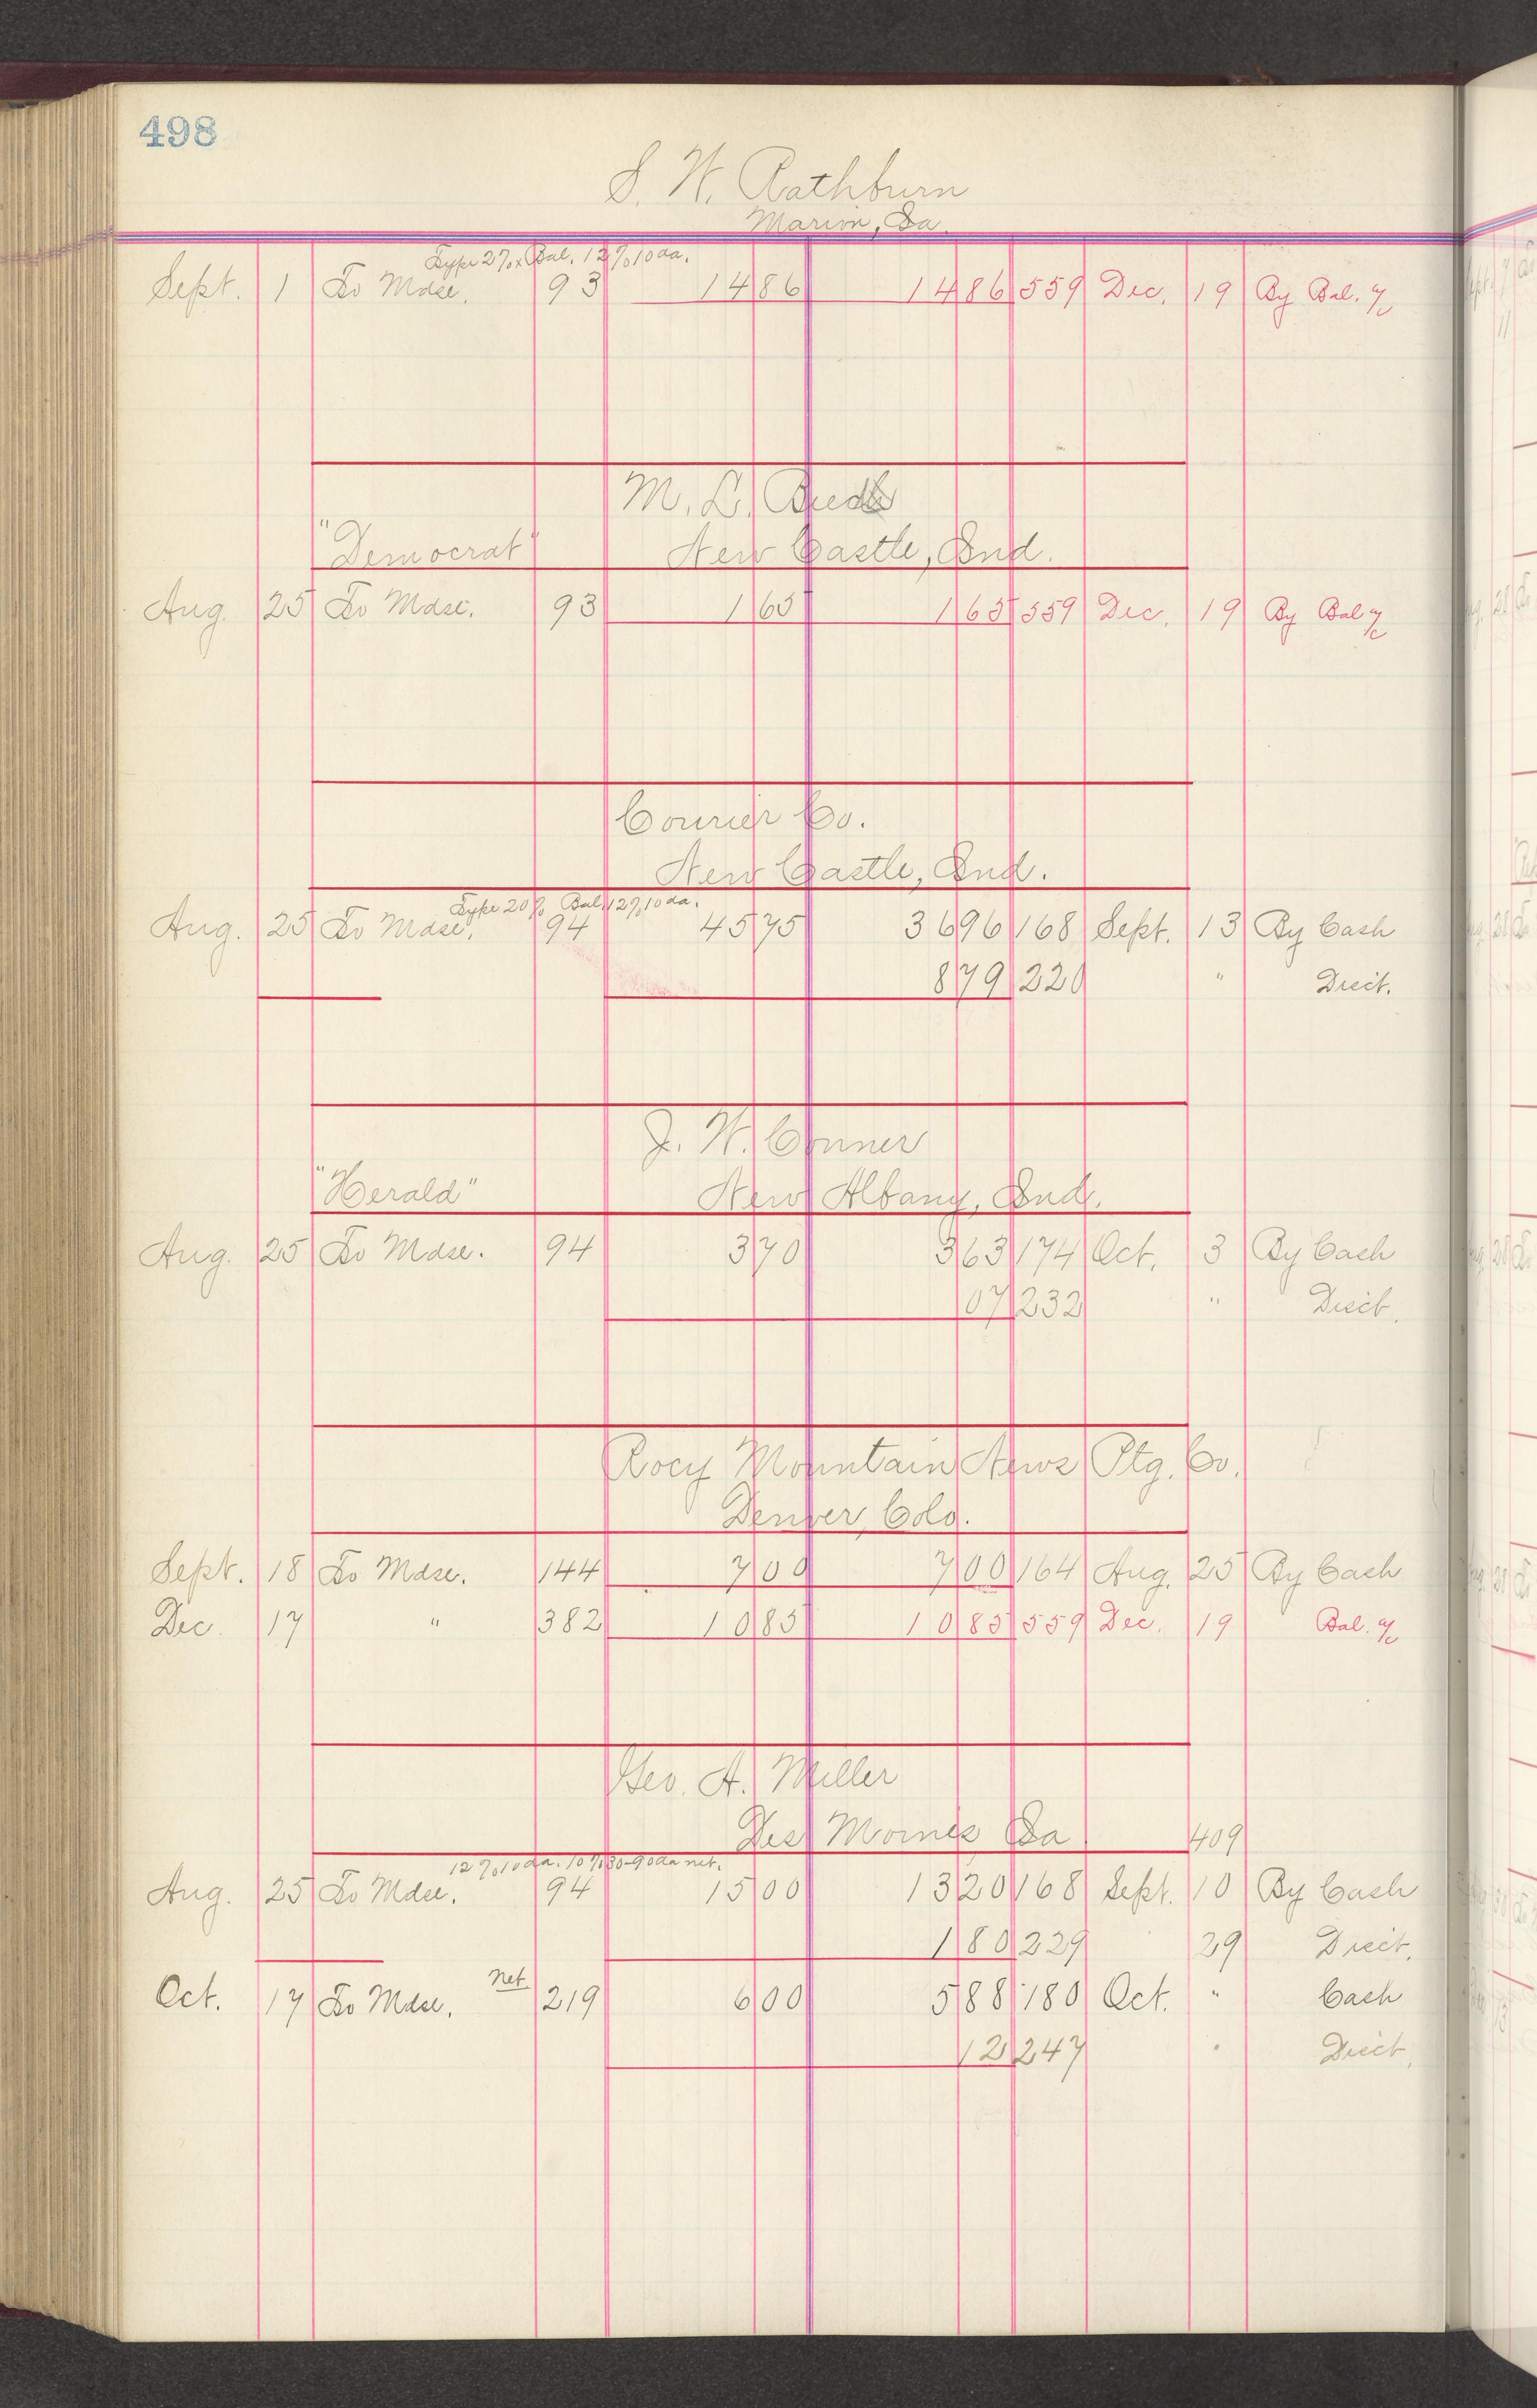 498
S. W. Rathburn
Marion, Ia.
Type 2%x Bal. 12%10da.
Sept. 1 To Mdse. 93 14 86 14 86 559 Dec. 19 By Bal. a/c
M. L.
"Democrat" New Castle, Ind.
Aug. 25 To Mdse. 93 1 65 1 65 559 Dec. 19 By Bal a/c
Courier Co.
New Castle, Ind.
Type 20% Bal. 12%10da.
Aug. 25 To Mdse. 94 45 75 36 96 168 Sept. 13 By Cash
8 79 220 " Disct.
J. W. Conner
"Herald" New Albany, Ind.
Aug. 25 To Mdse. 94 3 70 3 63 174 Oct. 3 By Cash
07 232 " Disct.
Rocy Mountain News Ptg. Co.
Denver, Colo.
Sept. 18 To Mdse. 144 7 00 7 00 164 Aug. 25 By Cash
Dec. 17 " 382 10 85 10 85 559 Dec. 19 Bal. a/c
Geo. A. Miller
Des Moines Ia. 409
12%10da. 10%30-90da net.
Aug. 25 To Mdse. 94 15 00 13 20 168 Sept. 10 By Cash
1 80 229 29 Disct.
Oct. 17 To Mdse. net 219 6 00 5 88 180 Oct. " Cash
12 247 " Disct.